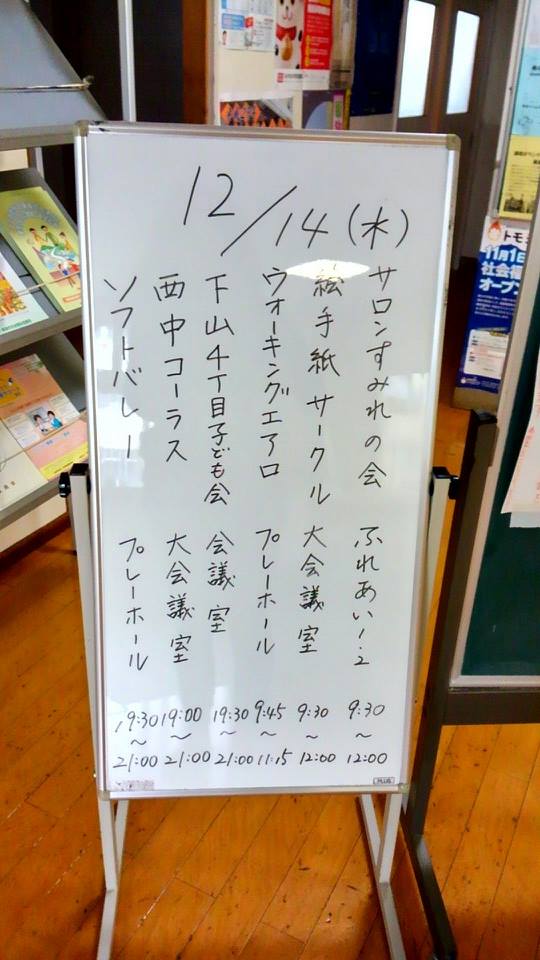 12/14(木)
サロンすみれの会 ふれあい1.2 9:30~12:00
絵手紙サークル 大会議室 9:30~12:00
ウォーキングエアロ プレーホール 9:45~11:15
下山4丁目子ども会 会議室 19:30~21:00
西中コーラス 大会議室 19:00~21:00
ソフトバレー プレーホール 19:30~21:00
PLUS
トモ
11月1日
社会福
オープン